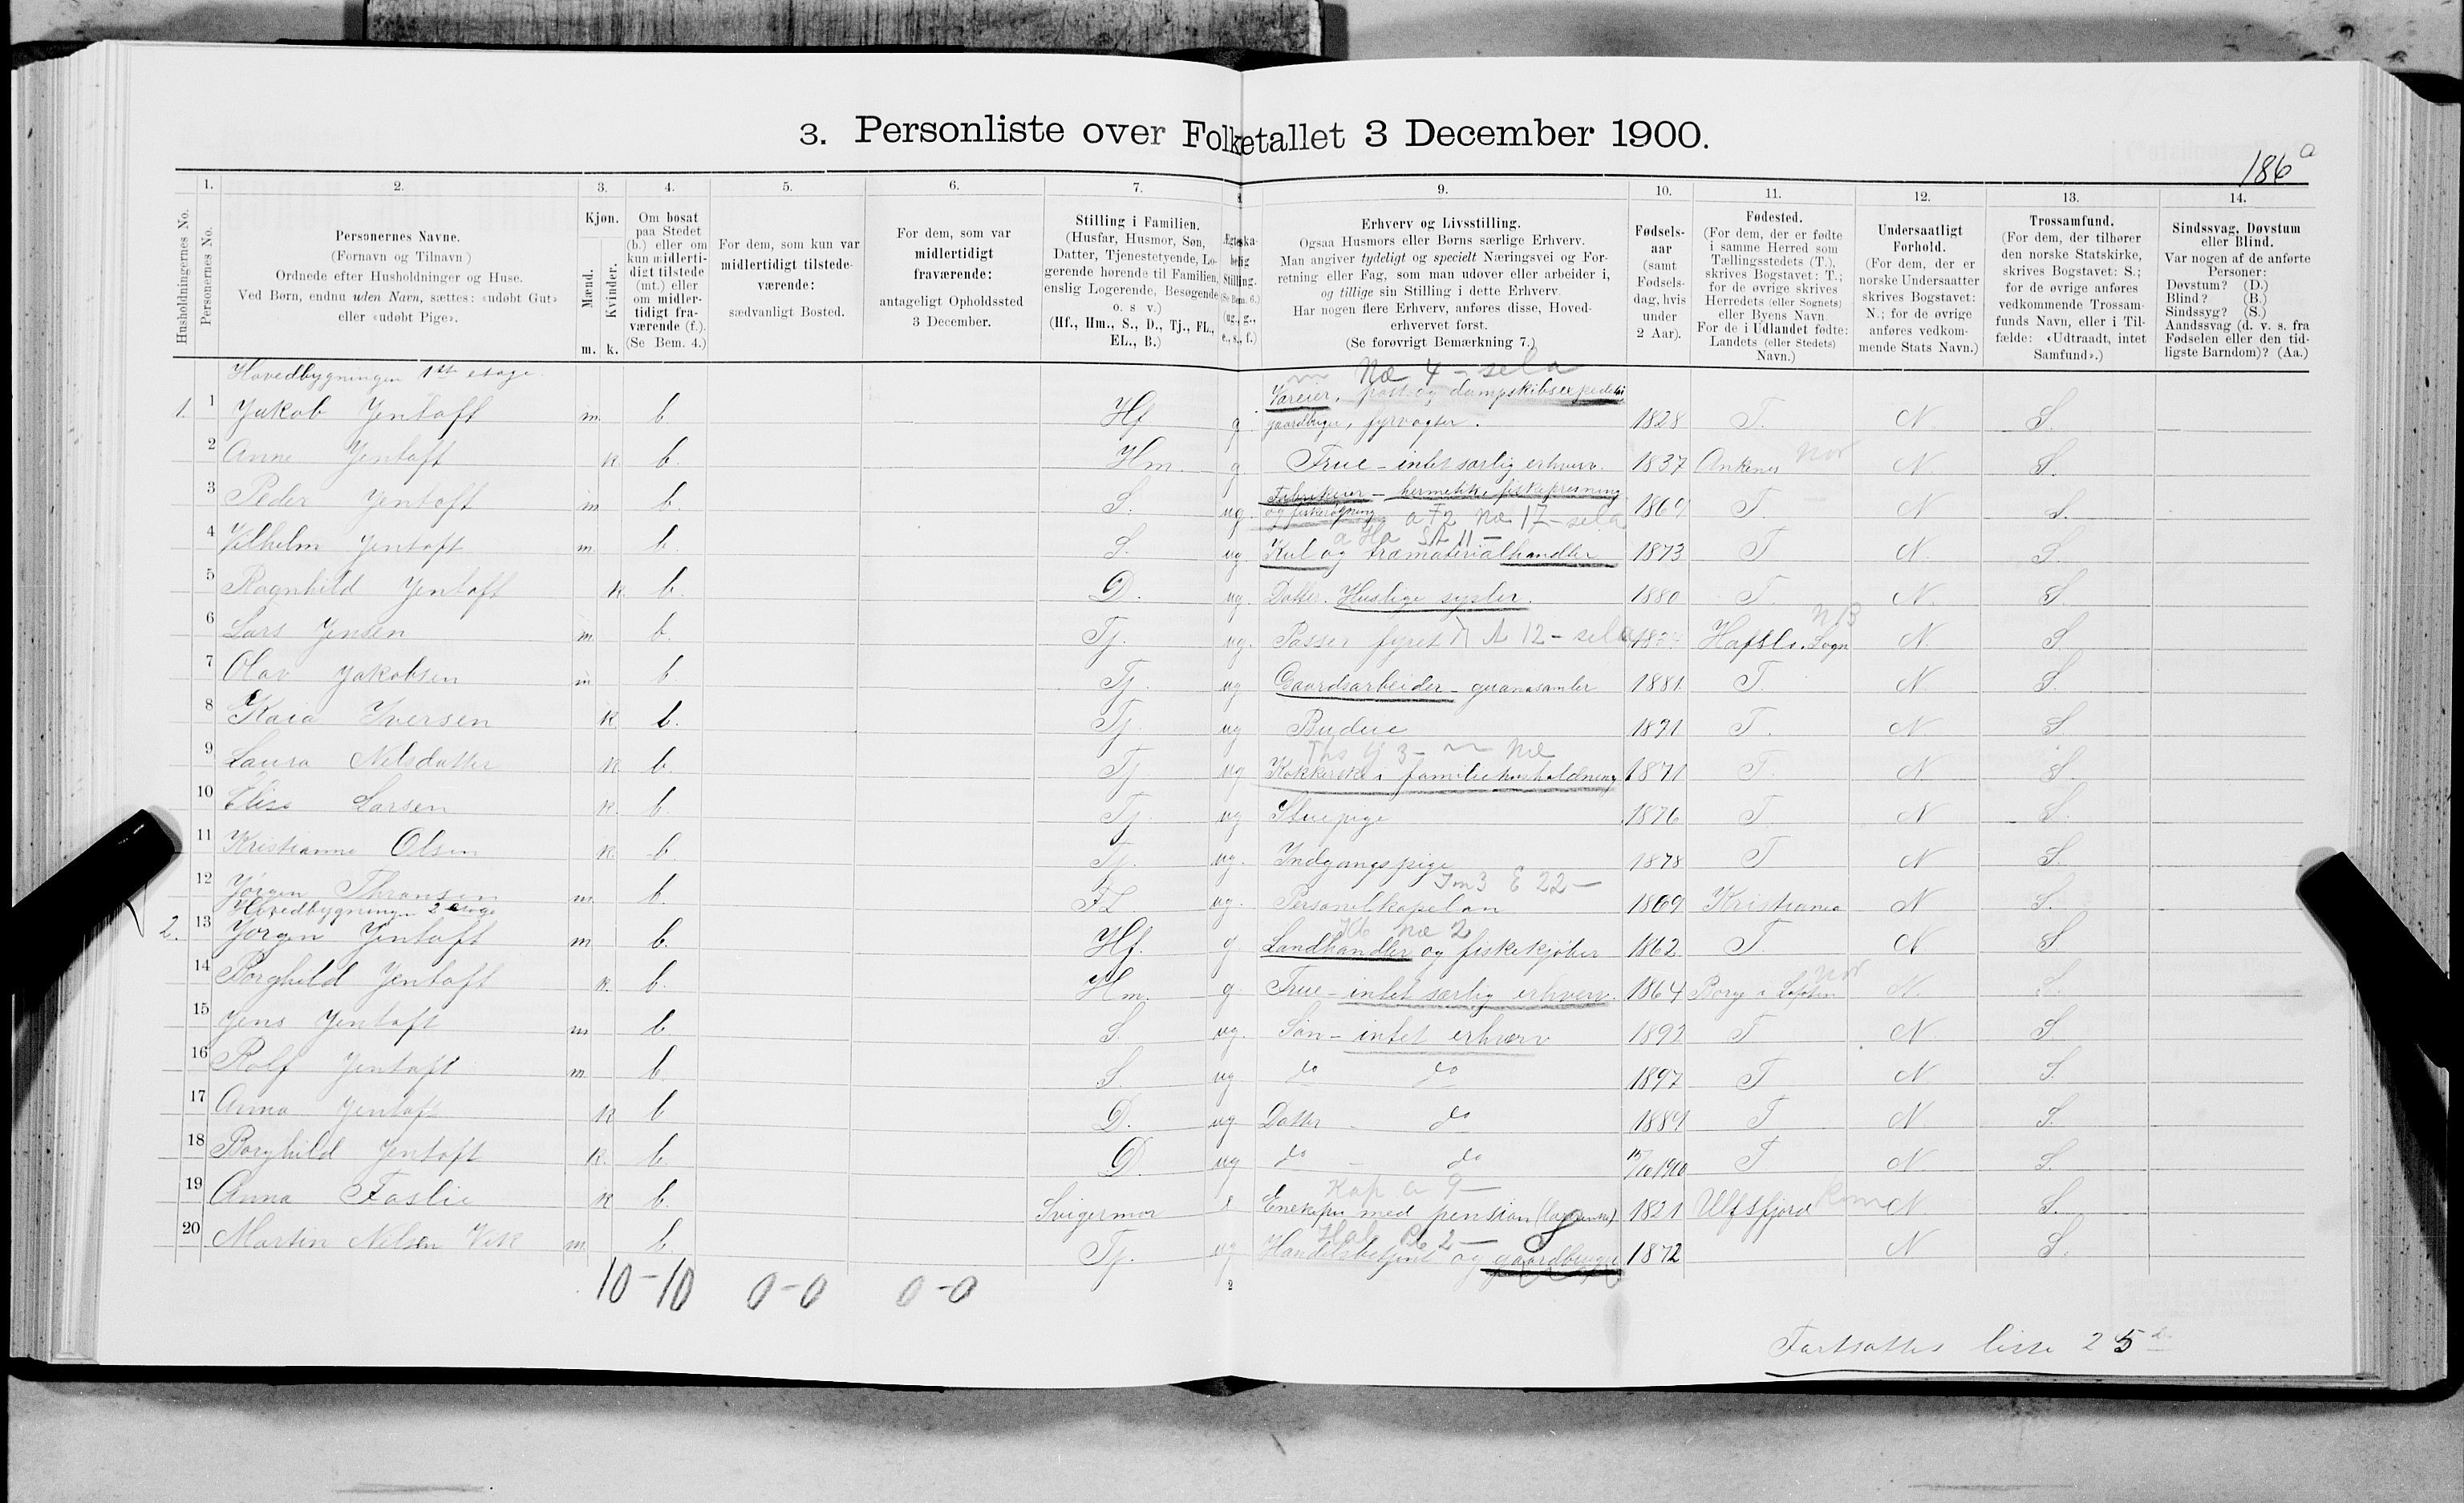 3. Personliste over Folketallet 3 December 1900.
186 a
1. 2. 3. 4. 5. 6. 7. 8. 9. 10. 11. 12. 13. 14.
Husholdningernes No.
Personernes No.
Personernes Navne.
(Fornavn og Tilnavn)
Ordnede efter Husholdninger og Huse.
Ved Børn, endnu uden Navn, sættes: «udøbt Gut»
eller «udøbt Pige».
Kjøn.
Mænd.
Kvinder.
m. k.
Om bosat
paa Stedet
(b.) eller om
kun midlerti-
digt tilstede
(mt.) eller
om midler-
tidigt fra-
værende (f.).
(Se Bem. 4.)
For dem, som kun var
midlertidigt tilstede-
værende:
sædvanligt Bosted.
For dem, som var
midlertidigt
fraværende:
antageligt Opholdssted
3 December.
Stilling i Familien.
(Husfar, Husmor, Søn,
Datter, Tjenestetyende, Lo-
gerende hørende til Familien,
enslig Logerende, Besøgende
o. s v.)
(Hf., Hm., S., D., Tj., FL.,
EL., B.)
Ægteska-
belig
Stilling.
(Se Bem. 6.)
(ug., g.,
e., s., f.)
Erhverv og Livsstilling.
Ogsaa Husmors eller Børns særlige Erhverv.
Man angiver tydeligt og specielt Næringsvei og For-
retning eller Fag, som man udøver eller arbeider i,
og tillige sin Stilling i dette Erhverv.
Har nogen flere Erhverv, anføres disse, Hoved-
erhvervet først.
(Se forøvrigt Bemærkning 7.)
Fødsels-
aar
(samt
Fødsels-
dag, hvis
under
2 Aar).
Fødested.
(For dem, der er fødte
i samme Herred som
Tællingsstedets (T.),
skrives Bogstavet: T.;
for de øvrige skrives
Herredets (eller Sognets)
eller Byens Navn.
For de i Udlandet fødte:
Landets (eller Stedets)
Navn.)
Undersaatligt
Forhold.
(For dem, der er
norske Undersaatter
skrives Bogstavet:
N.; for de øvrige
anføres vedkom-
mende Stats Navn.)
Trossamfund.
(For dem, der tilhører
den norske Statskirke,
skrives Bogstavet: S.;
for de øvrige anføres
vedkommende Trossam-
funds Navn, eller i Til-
fælde: «Udtraadt, intet
Samfund».)
Sindssvag, Døvstum
eller Blind.
Var nogen af de anførte
Personer:
Døvstum? (D.)
Blind? (B.)
Sindssyg? (S.)
Aandssvag (d. v. s. fra
Fødselen eller den tid-
ligste Barndom)? (Aa.)
Hovedbygningen 1ste etage.
Næ 4 - sela
Væreier, post og dampskibsexpeditør
1. 1 Jakob Jentoft m. b Hf g gaardbruger, fyrvogter. 1828 T. N. S.
2 Anne Jentoft k. b. Hm. g. Frue - intet særlig erhverv. 1837 Ankenes Nor N S.
Fabrikeier - hermetikk fiskepresning
3 Peder Jentoft m b. S. ug. og fiskerøgning a F2 Næ 17 - sela 1869 T. N S.
a Ha St 11 -
4 Vilhelm Jentoft m b. S. ug. Kul og træmaterialhandler 1873 T N. S.
5 Ragnhild Jentoft k. b. D. ug. Datter. Huslige sysler. 1880 T. N. S.
NB
6 Lars Jensen m b. Tj. ug. Passer fyret A 12 - sela Hafslo, Sogn N. S
7 Olav Jakobsen m b. Tj. ug Gaardsarbeider - guanosamler 1881. T. N S.
8 Kaia Iversen k b. Tj. ug Budeie T. N S
Ths y 3 - Næ
9 Laura Nilsdatter k b. Tj ug Kokkerske i familiehusholdning 1871 T. N S.
10 Elise Larsen k. b. Tj. ug Stuepige 1876 T. N S.
11 Kristianne Olsen k. b. Tj. ug. Indgangspige 1878 T N S.
Im 3 E 22 -
12 Jørgen Thransen m b. FL ug. Personelkapelan 1869 Kristiania N S.
Hovedbygningen 2 etage
Hb Næ 2
2. 13 Jørgen Jentoft m b. Hf. g Landhandler og fiskekjøber 1862 T. N S
Nor
14 Borghild Jentoft k. b. Hm. g Frue - intet særlig erhverv. 1864 Borge i Lofoten N S.
15 Jens Jentoft m b. S. ug. Søn - intet erhverv 1892 T N S
16 Rolf Jentoft m b. S. ug do do 1897 T N S.
17 Anna Jentoft k b D. ug Datter - do 1889 T N S.
18 Borghild Jentoft k. b. D. ug do - do 15/10 1900 T N. S.
Kap a 9 -
19 Anna Faslie k b. Svigermor e Enkefru med pension 1821 Ulfsfjord Rom N. S.
Hab B 2 - 8
20 Martin Nilsen Vik m b. Tj. ug Handelsbetjent og gaardbruger 1872 N S.
10 - 10 0 - 0 0 - 0
2
Fortsættes liste 2 5